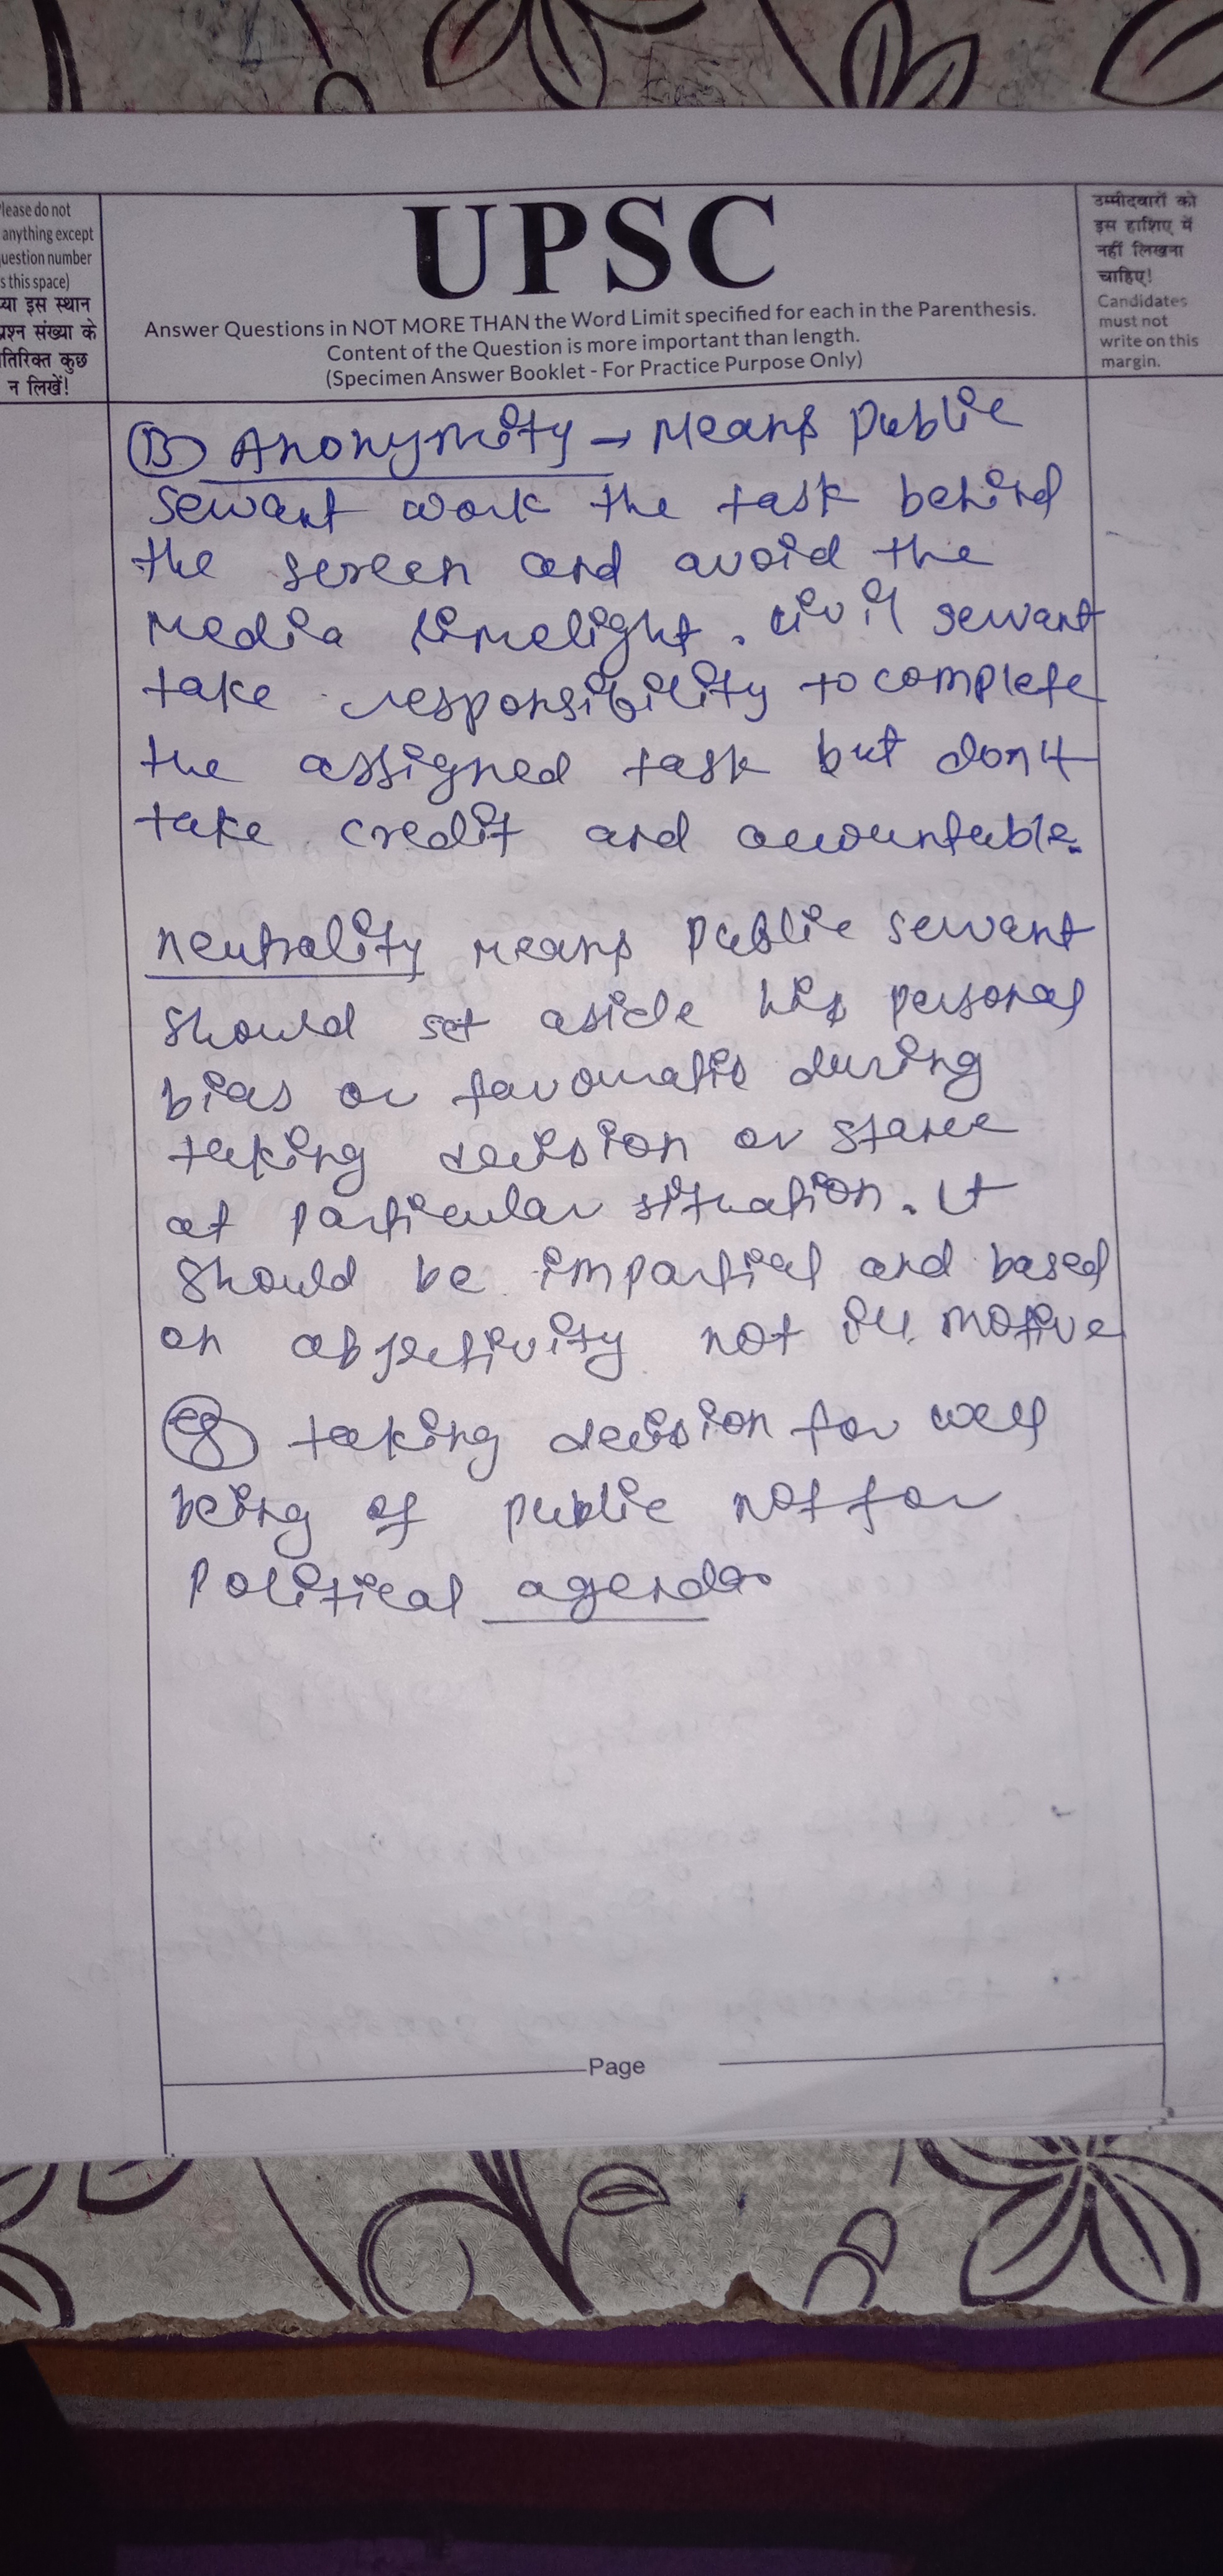 lease do not
anything except
uestion number
s this space)
या इस स्थान
प्रश्न संख्या के
तिरिक्त कुछ
न लिखें!
UPSC
Answer Questions in NOT MORE THAN the Word Limit specified for each in the Parenthesis.
Content of the Question is more important than length.
(Specimen Answer Booklet - For Practice Purpose Only)
उम्मीदवारों को
इस हाशिए में
नहीं लिखना
चाहिए!
Candidates
must not
write on this
margin.
(B) Anonymity → Means public
servant work the task behind
the screen and avoid the
media limelight. civil servant
take responsibility to complete
the assigned task but don't
take credit and accountable.
neutrality means public servant
should set aside his personal
bias or during
taking decision or stance
at particular situation. It
should be impartial and based
on objectivity not ill motive
eg taking decision for well
being of public not for
political agenda
Page